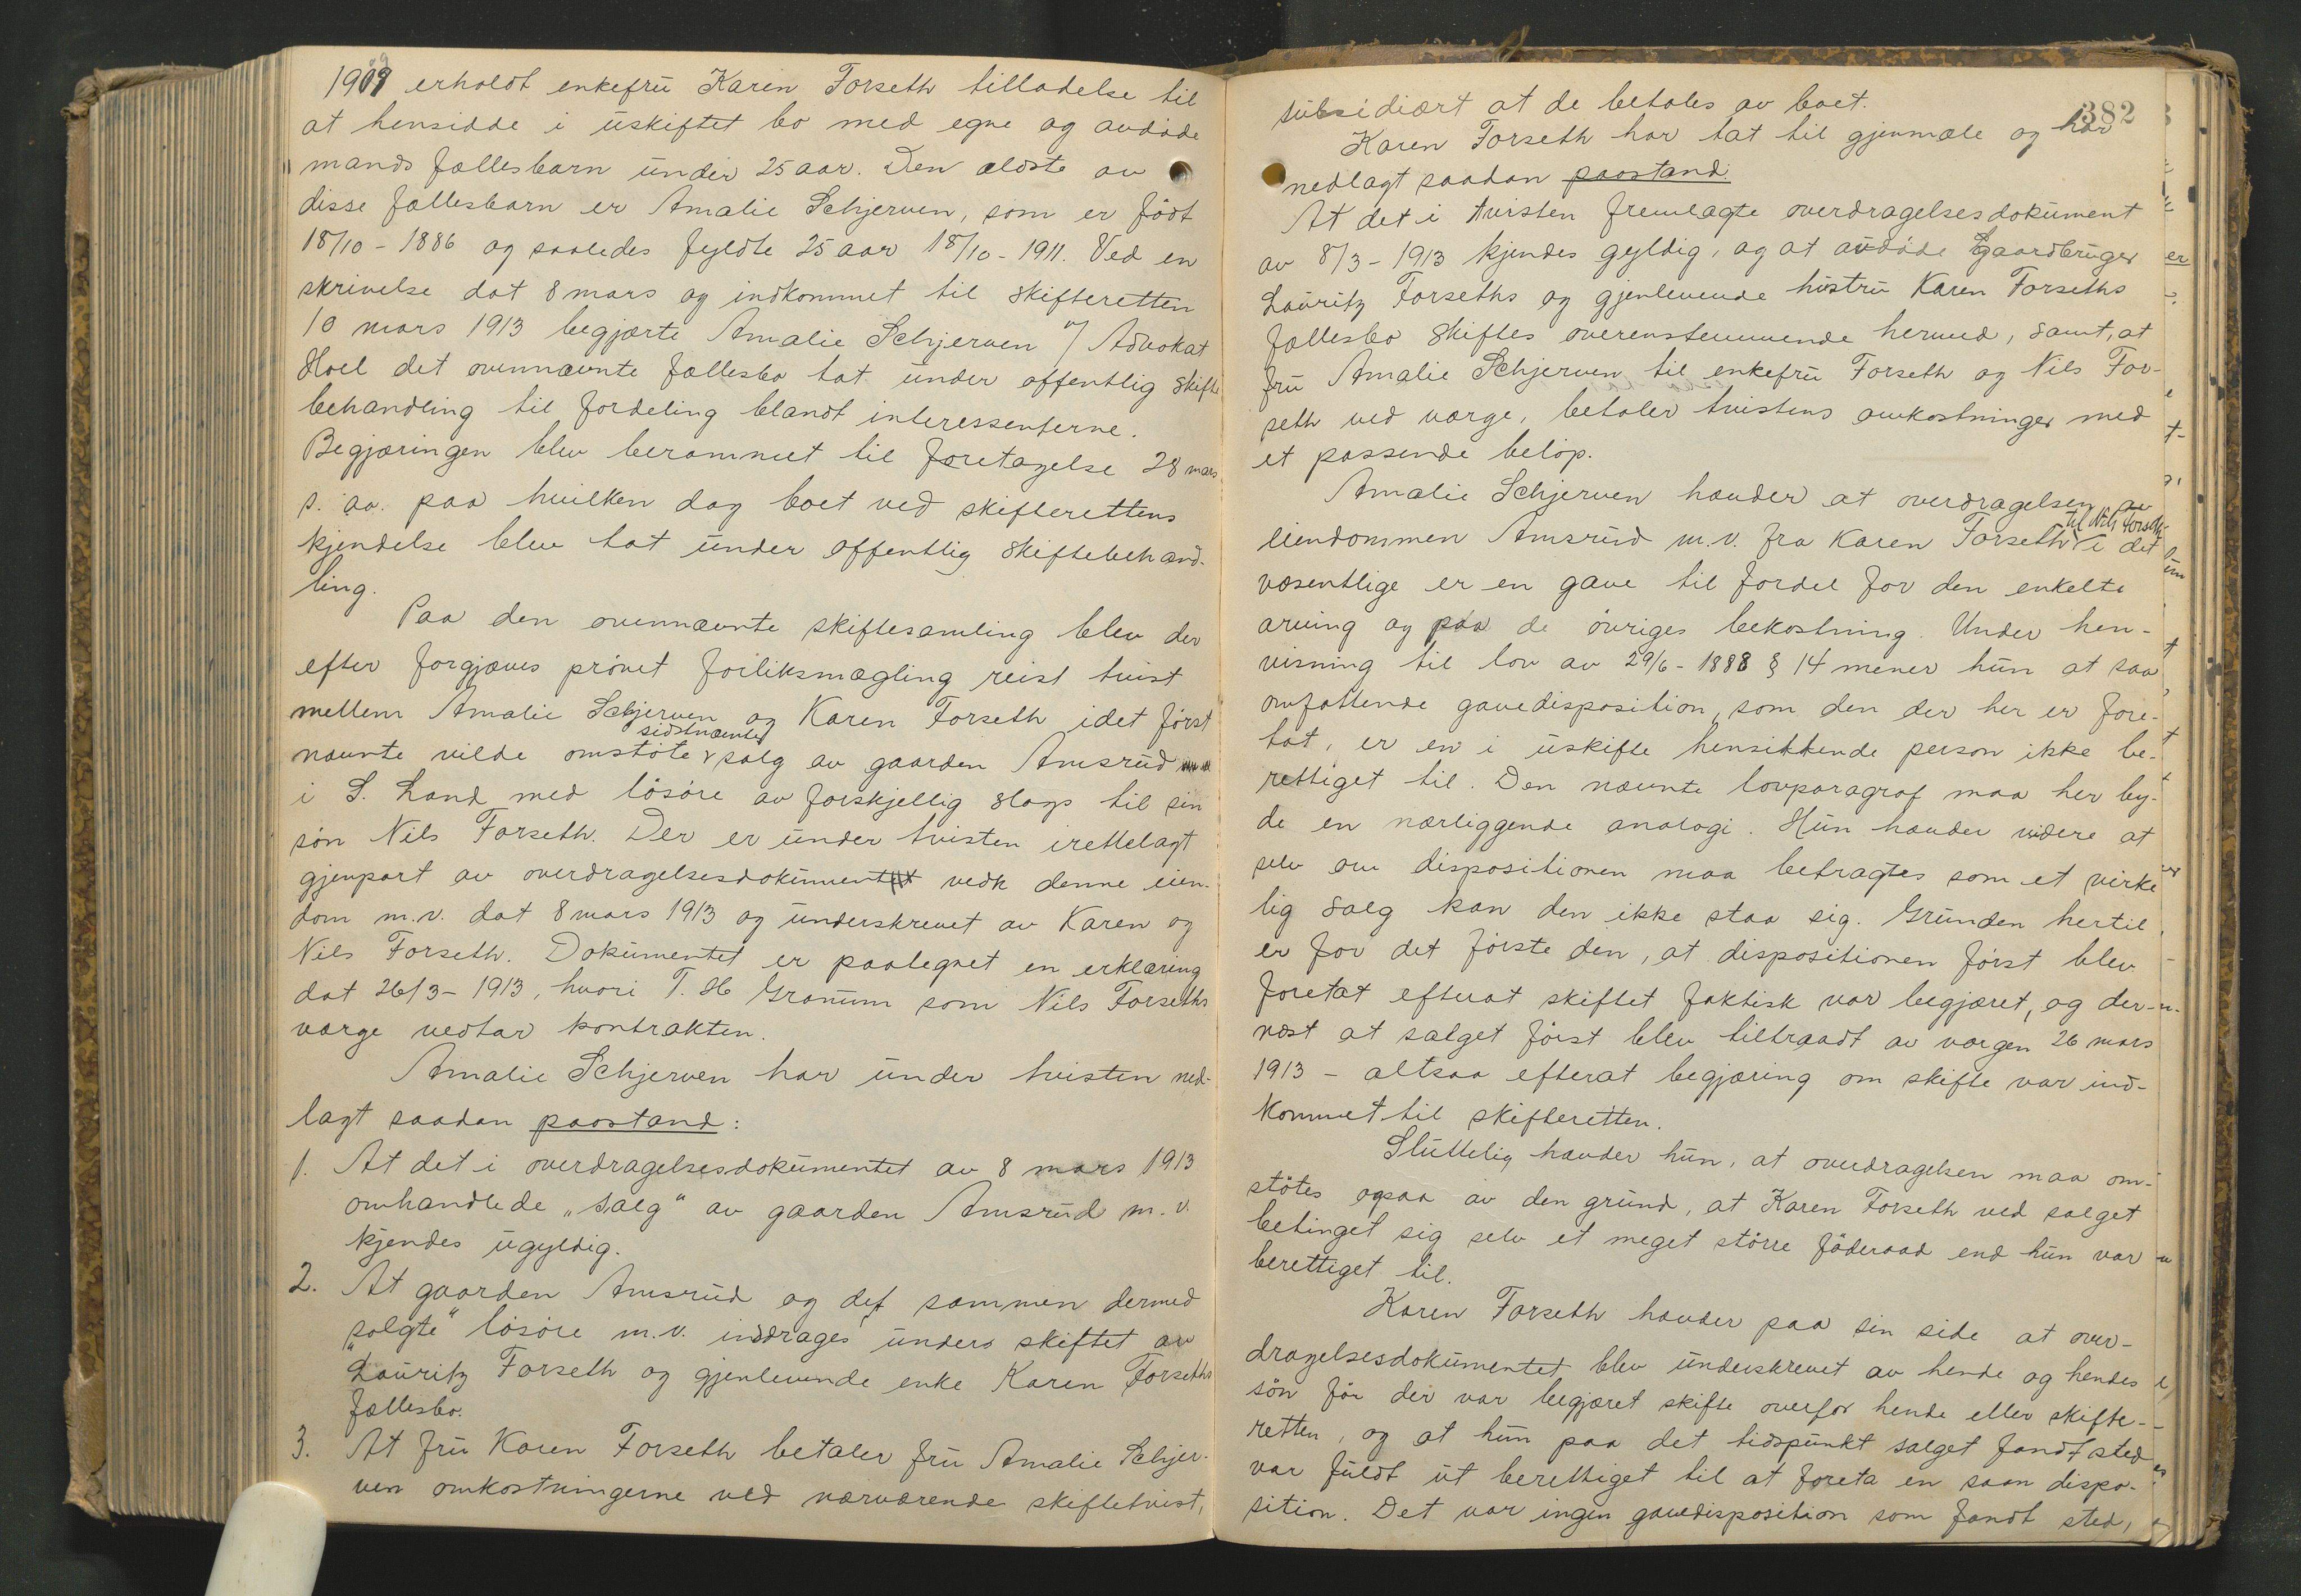 1909 erholdt enkefru Karen Forseth tilladelse til
at hensidde i uskiftet bo med egne og avdøde
mands fællesbarn under 25 aar. Den ældste av
disse fællesbarn er Amalie Schjerven, som er født
18/10 - 1886 og saaledes fyldte 25 aar 18/10 - 1911. Ved en
skrivelse dat 8 mars og indkommet til skifteretten
10 mars 1913 begjærte Amalie Schjerven v/ Advokat
Hoel det ovennævnte fællesbo tat under offentlig skifte
behandling til fordeling blandt interessenterne.
Begjæringen blev berammet til foretagelse 28 mars
s. aa. paa hvilken dag boet ved skifterettens
kjendelse blev tat under offentlig skiftebehand-
ling.
Paa den ovennævnte skiftesamling blev der
efter forgjæves prövet forliksmægling reist tvist
mellem Amalie Schjerven og Karen Forseth idet først
nævnte vilde omstöte sidstnævntes salg av gaarden Amsrud
i S. Land med lösöre av forskjellig slags til sin
sön Nils Forseth. Der er under tvisten irettelagt
gjenpart av overdragelsesdokument vedk denne eien-
dom m.v. dat 8 mars 1913 og underskrevet av Karen og
Nils Forseth. Dokumentet er paategnet en erklæring
dat 26/3 - 1913, hvori T. H. Granum som Nils Forseths
værge vedtar kontrakten.
Amalie Schjerven har under tvisten ned-
lagt saadan paastand:
1. At det i overdragelsesdokumentet av 8 mars 1913
omhandlede „salg" av gaarden Amsrud m.v.
kjendes ugyldig.
2. At gaarden Amsrud og det sammen dermed
„solgte" lösöre m.v. inddrages under skiftet av
Lauritz Forseth og gjenlevende enke Karen Forseths
fællesbo.
3. At fru Karen Forseth betaler fru Amalie Schjer-
ven omkostningerne ved nærværende skiftetvist,
382
subsidiært at de betales av boet.
Karen Forseth har tat til gjenmæle og har
nedlagt saadan paastand:
At det i tvisten fremlagte overdragelsesdokument
av 8/3 - 1913 kjendes gyldig, og at avdøde gaardbruger
Lauritz Forseths og gjenlevende hustru Karen Forseths
fællesbo skiftes overenstemmende hermed, samt, at
fru Amalie Schjerven til enkefru Forseth og Nils For-
seth ved værge, betaler tvistens omkostninger med
et passende belöp.
Amalie Schjerven hævder at overdragelsen av
eiendommen Amsrud m.v. fra Karen Forseth til Nils Forseth i det
væsentlige er en gave til fordel for den enkelte
arving og paa de övriges bekostning. Under hen-
visning til lov av 29/6 - 1888 § 14 mener hun at saa
omfattende gavedisposition, som den der her er fore-
tat, er en i uskifte hensittende person ikke be-
rettiget til. Den nævnte lovparagraf maa her by-
de en nærliggende analogi. Hun hævder videre at
selv om dispositionen maa betragtes som et virke
lig salg kan den ikke staa sig. Grunden hertil
er for det förste den, at dispositionen först blev
foretat efterat skiftet faktisk var begjæret, og der-
næst at salget först blev tiltraadt av værgen 26 mars
1913 - altsaa efterat begjæring om skifte var ind-
kommet til skifteretten.
Sluttelig hævder hun, at overdragelsen maa om-
stötes ogsaa av den grund, at Karen Forseth ved salget
betinget sig selv et meget större föderaad end hun var
berettiget til.
Karen Forseth hævder paa sin side at over-
dragelsesdokumentet blev underskrevet av hende og hendes
sön för der var begjæret skifte overfor hende eller skifte-
retten, og at hun paa det tidspunkt salget fandt sted
var fuldt ut berettiget til at foreta en saan dispo-
sition. Det var ingen gavedisposition som fandt sted,